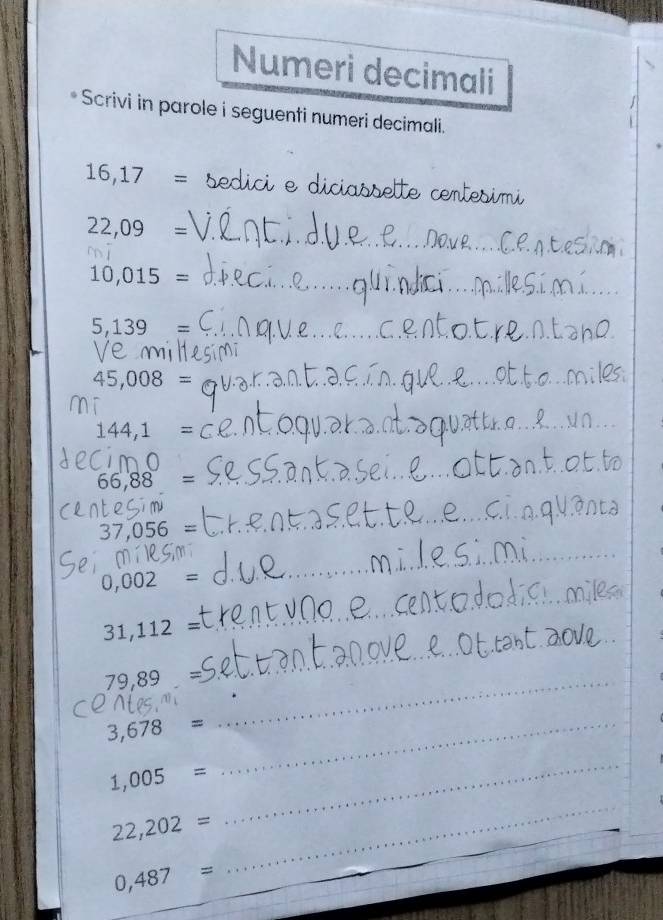 Numeri decimali
• Scrivi in parole i seguenti numeri decimali.
16,17 = sedici e diciassette centesimi
22,09 = Venti.due e nove centesimi
mi
10,015 = dieci e quindici millesimi
5,139 = Cinque e centotrentano
ve millesimi
45,008 = quarantacinque e otto milesi
mi
144,1 = centoquarantaquattro e un
decimo
66,88 = sessantasei e ottantotto
centesimi
37,056 = trentasette e cinquanta
Sei milesimi
0,002 = due milesimi
31,112 = trentuno e centododici milesi
79,89 = settantanove e ottantanove
centesimi
3,678 =
1,005 =
22,202 =
0,487 =